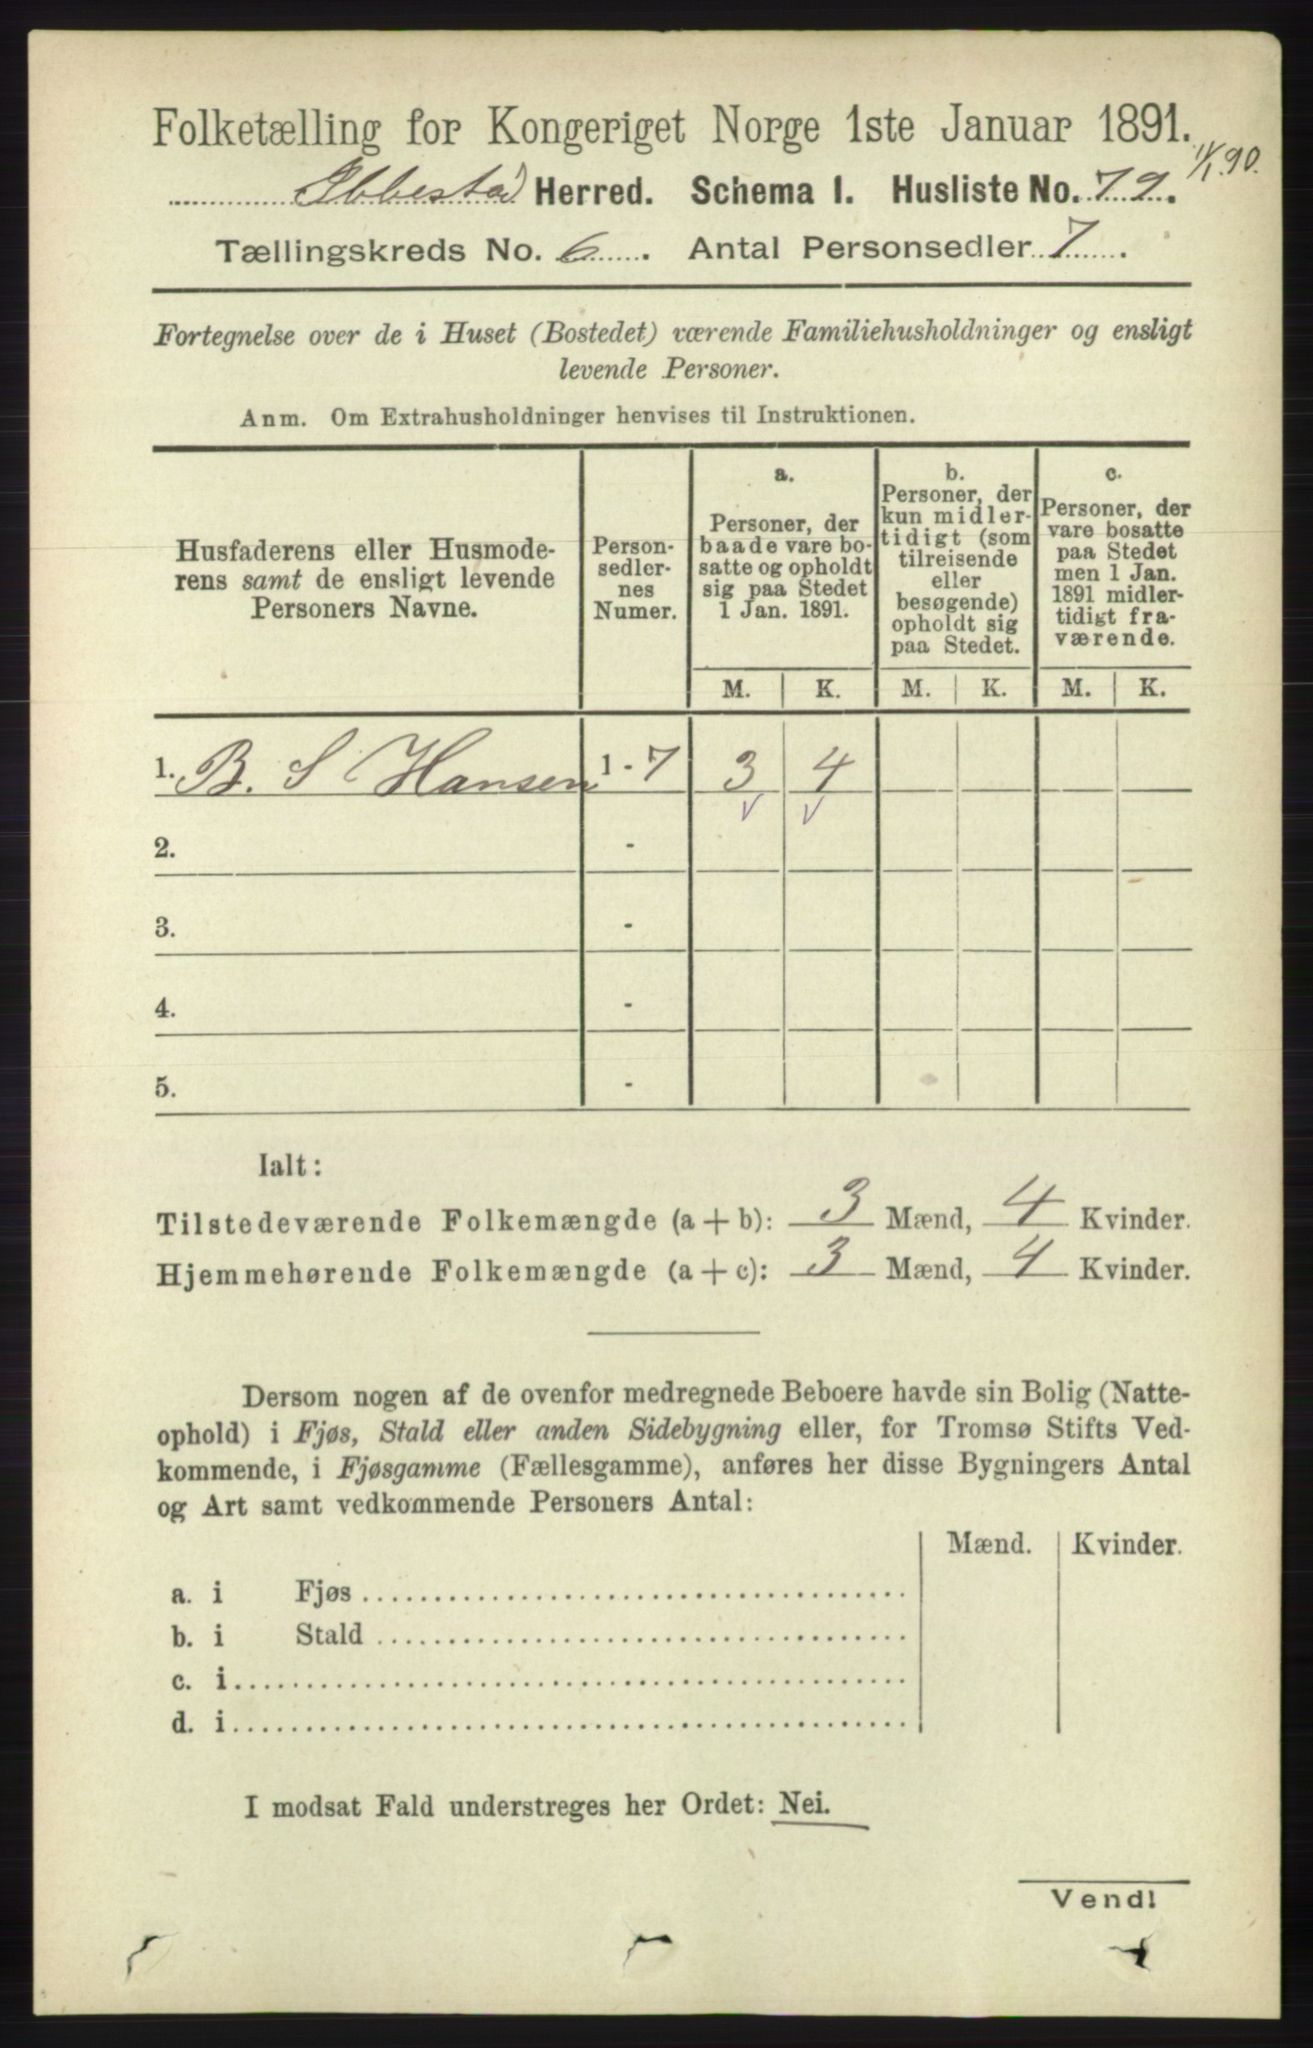 Folketælling for Kongeriget Norge 1ste Januar 1891.
Ibbestad Herred. Schema 1. Husliste No. 79.
Tællingskreds No. 6. Antal Personsedler 7.
Fortegnelse over de i Huset (Bostedet) værende Familiehusholdninger og ensligt
levende Personer.
Anm. Om Extrahusholdninger henvises til Instruktionen.
Husfaderens eller Husmode-
rens samt de ensligt levende
Personers Navne.
Person-
sedler-
nes
Numer.
a.
Personer, der
baade vare bo-
satte og opholdt
sig paa Stedet
1 Jan. 1891.
b.
Personer, der
kun midler-
tidigt (som
tilreisende
eller
besøgende)
opholdt sig
paa Stedet.
c.
Personer, der
vare bosatte
paa Stedet
men 1 Jan.
1891 midler-
tidigt fra-
værende.
M. K. M. K. M. K.
1. B. S Hansen 1 - 7 3 4
2. -
3. -
4. -
5. -
Ialt:
Tilstedeværende Folkemængde (a + b): 3 Mænd, 4 Kvinder.
Hjemmehørende Folkemængde (a + c): 3 Mænd, 4 Kvinder.
Dersom nogen af de ovenfor medregnede Beboere havde sin Bolig (Natte-
ophold) i Fjøs, Stald eller anden Sidebygning eller, for Tromsø Stifts Ved-
kommende, i Fjøsgamme (Fællesgamme), anføres her disse Bygningers Antal
og Art samt vedkommende Personers Antal:
Mænd. Kvinder.
a. i Fjøs
b. i Stald
c. i
d. i
I modsat Fald understreges her Ordet: Nei.
Vend!